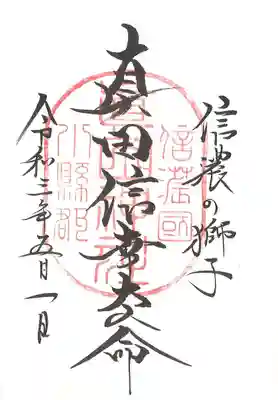 信濃の獅子
真田信幸大命
令和二年五月一日
信濃國
小縣郡